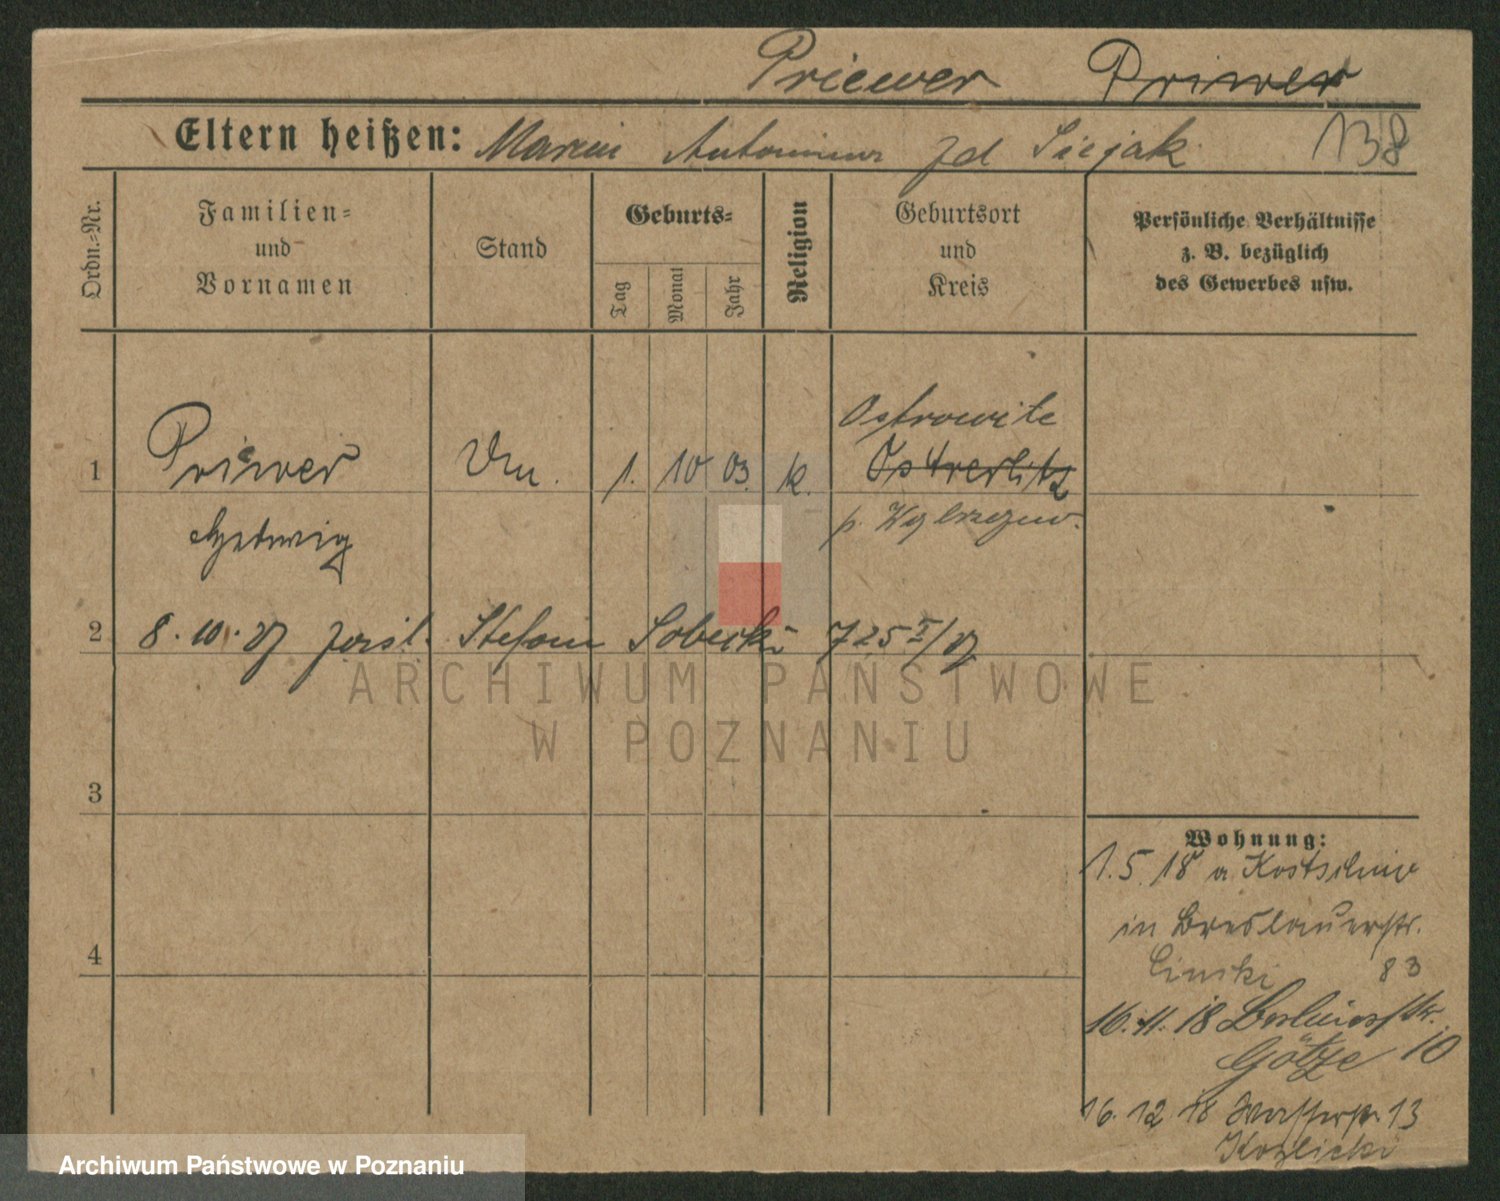 Priewer Priwer
Eltern heißen: Marcin Antonina zd Siejak 138
Ordn.-Nr.
Familien- und Vornamen
Stand
Geburts-
Tag Monat Jahr
Religion
Geburtsort und Kreis
Persönliche Verhältnisse z. B. bezüglich des Gewerbes usw.
Ostrowite
1 Priewer Dm. 1. 10 03. k. Ostrerlitz
Hedwig
2 8.10.27 Stefan Sobecki 725 X/27
ARCHIWUM PAŃSTWOWE
W POZNANIU
3
Wohnung:
1.5.18 a Kostschin
in Breslauerstr.
83
4
16.11.18 Berlinerstr. 10
Götze
16.12.18 Wasserstr. 13
Kozlicki
Archiwum Państwowe w Poznaniu